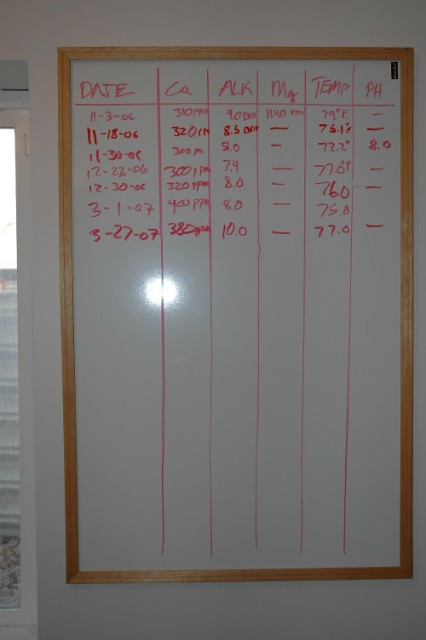 DATE Ca ALK Mg TEMP PH
11-3-06 310 ppm 9.0 1140 ppm 79°F —
11-18-06 320 8.5 — 75.1° —
11-30-06 300 8.0 — 72.2° 8.0
12-23-06 300 ppm 7.4 — 77.0° —
12-30-06 320 ppm 8.0 — 76.0 —
3-1-07 400 ppm 8.0 75.0
3-27-07 380 ppm 10.0 — 77.0 —